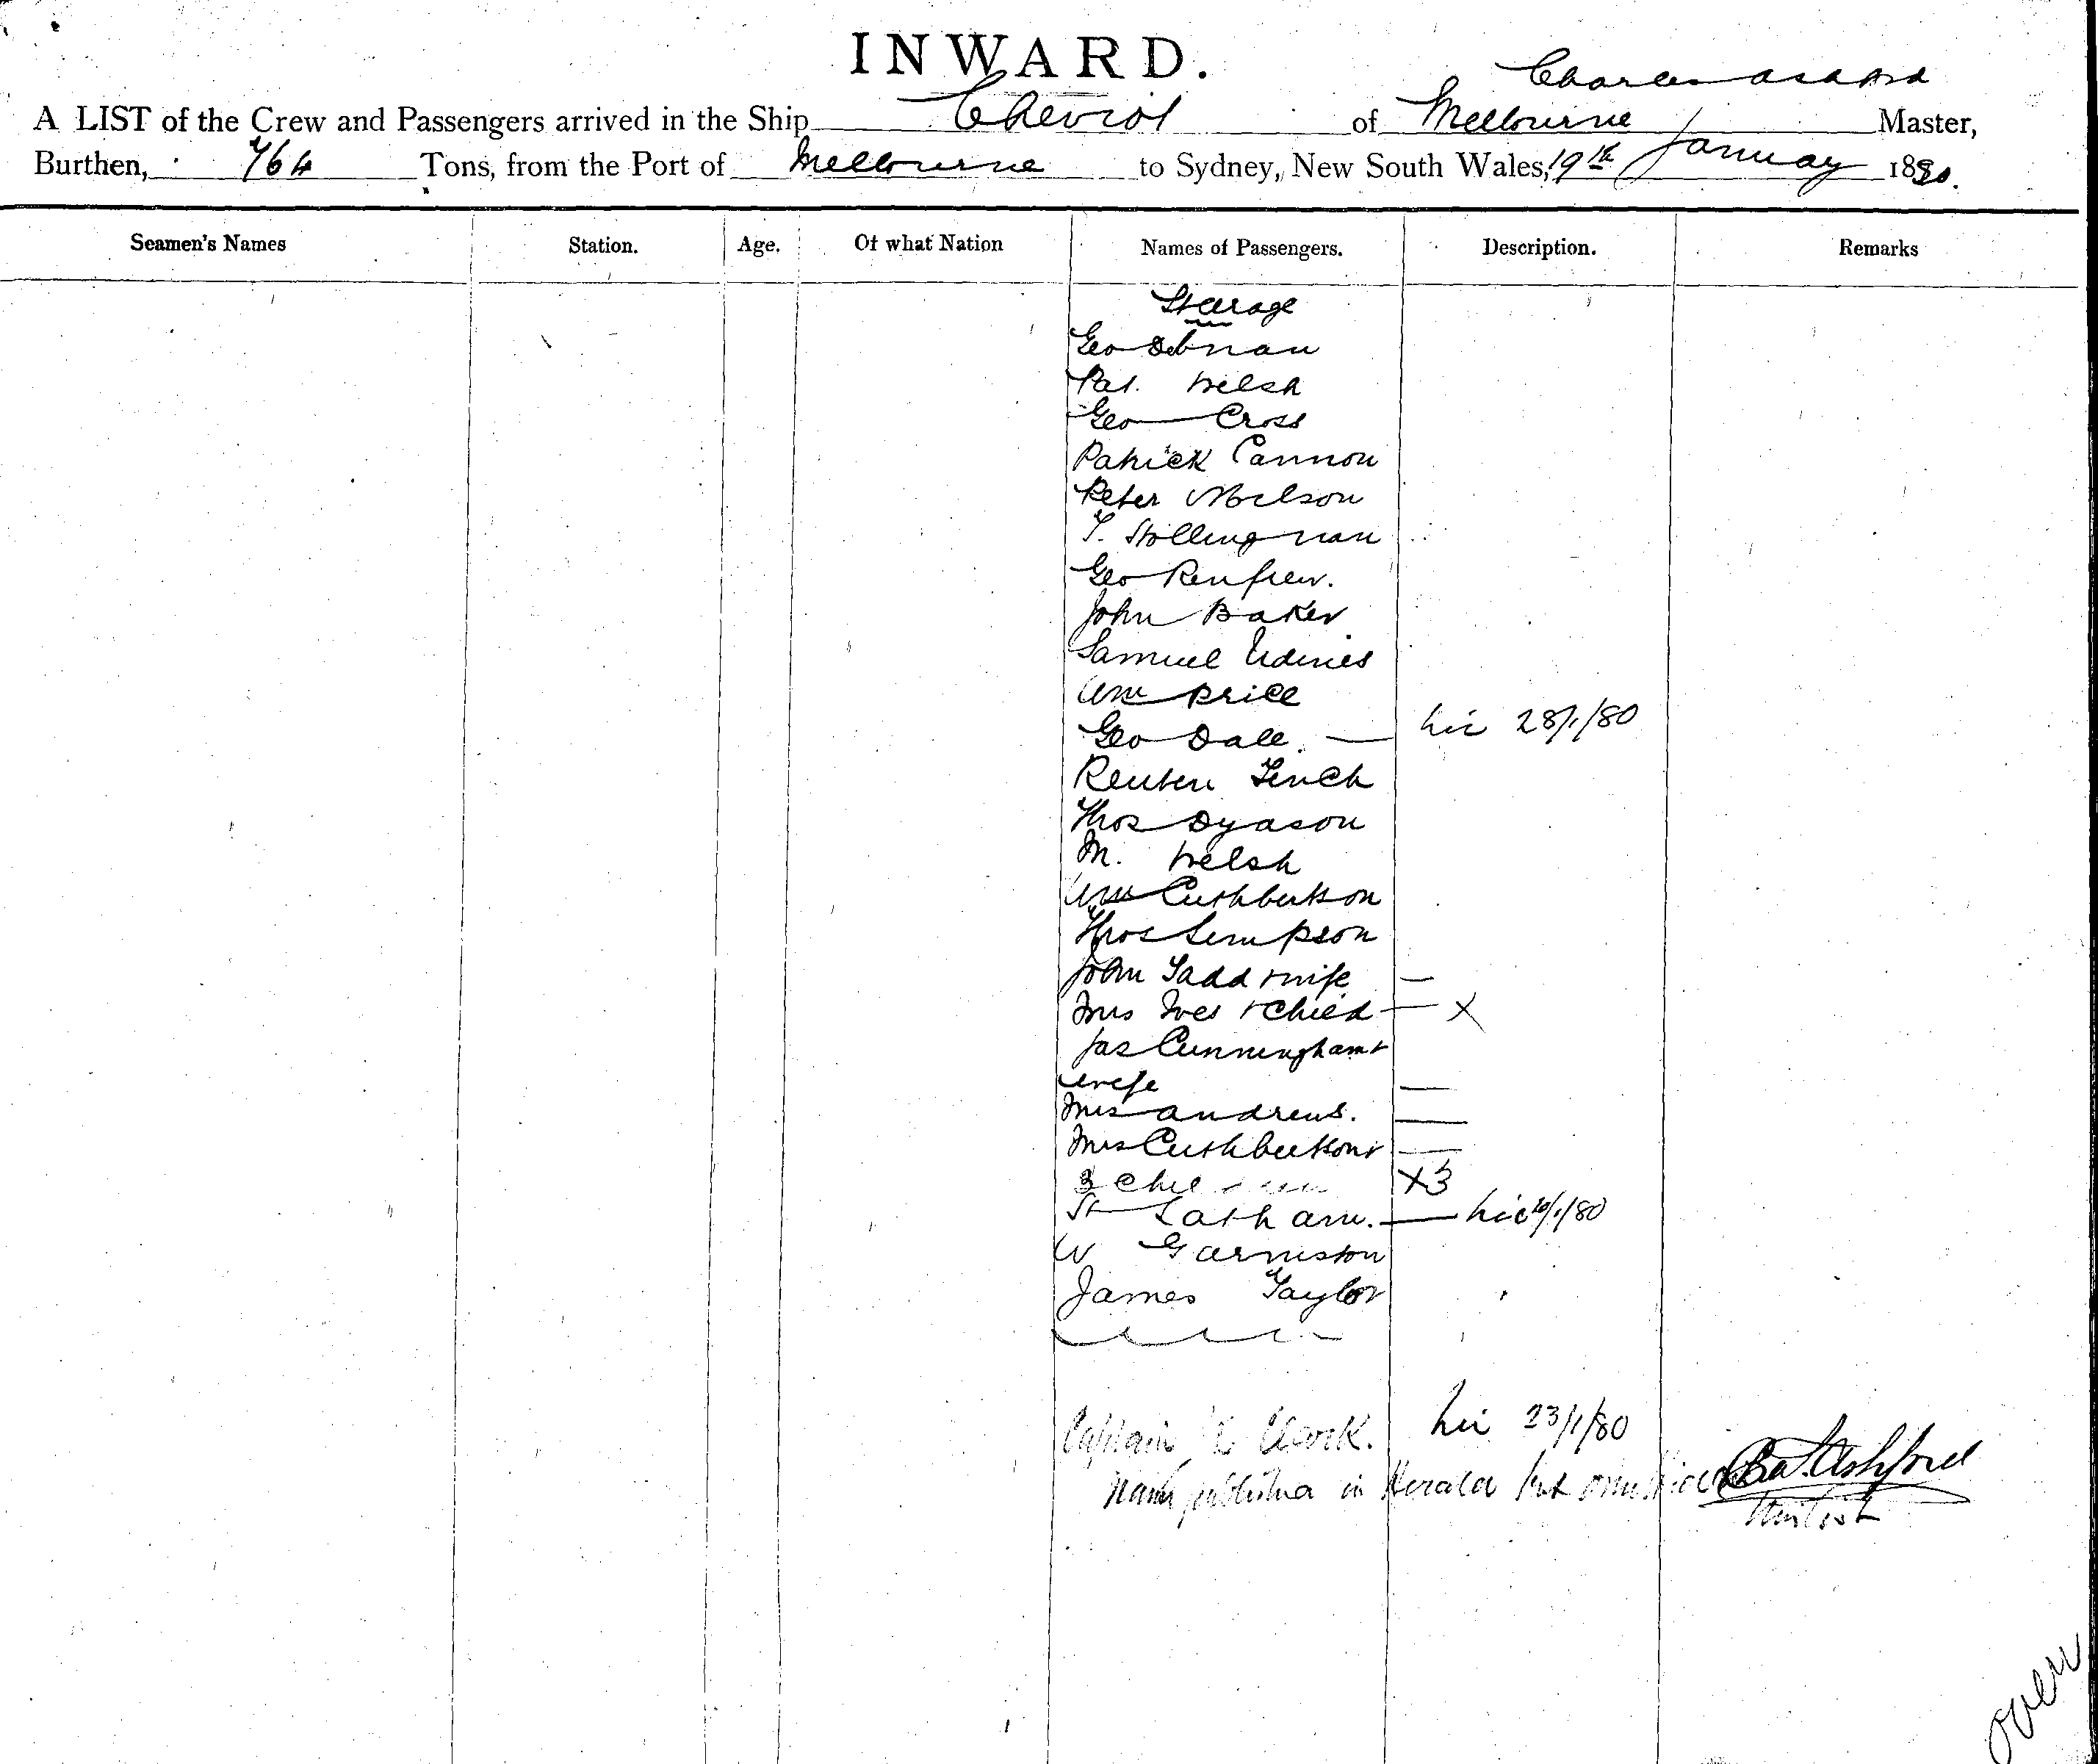 INWARD.
Charles
A LIST of the Crew and Passengers arrived in the Ship Cheviot of Melbourne Master,
Burthen, 764 Tons, from the Port of Melbourne to Sydney, New South Wales, 19th January 1880.
Seamen's Names Station. Age. Of what Nation Names of Passengers. Description. Remarks
Steerage
Geo
Pat. Welsh
Geo Cross
Patrick Cannon
Peter
T.
Geo Renfrew.
John Baker
Samuel
Wm Price
Geo Dale. 28/1/80
Reuben
Thos Dyason
M. Welsh
Wm Cuthbertson
Thos Simpson
John Tadd + wife
Mrs Ives + Child X
Jas Cunningham +
wife
Mrs Andrews.
Mrs Cuthbertson +
3 children X3
Latham. /80
W
James Taylor
Captain Clark. 23/1/80
Name published in Herald but
Ashford
over